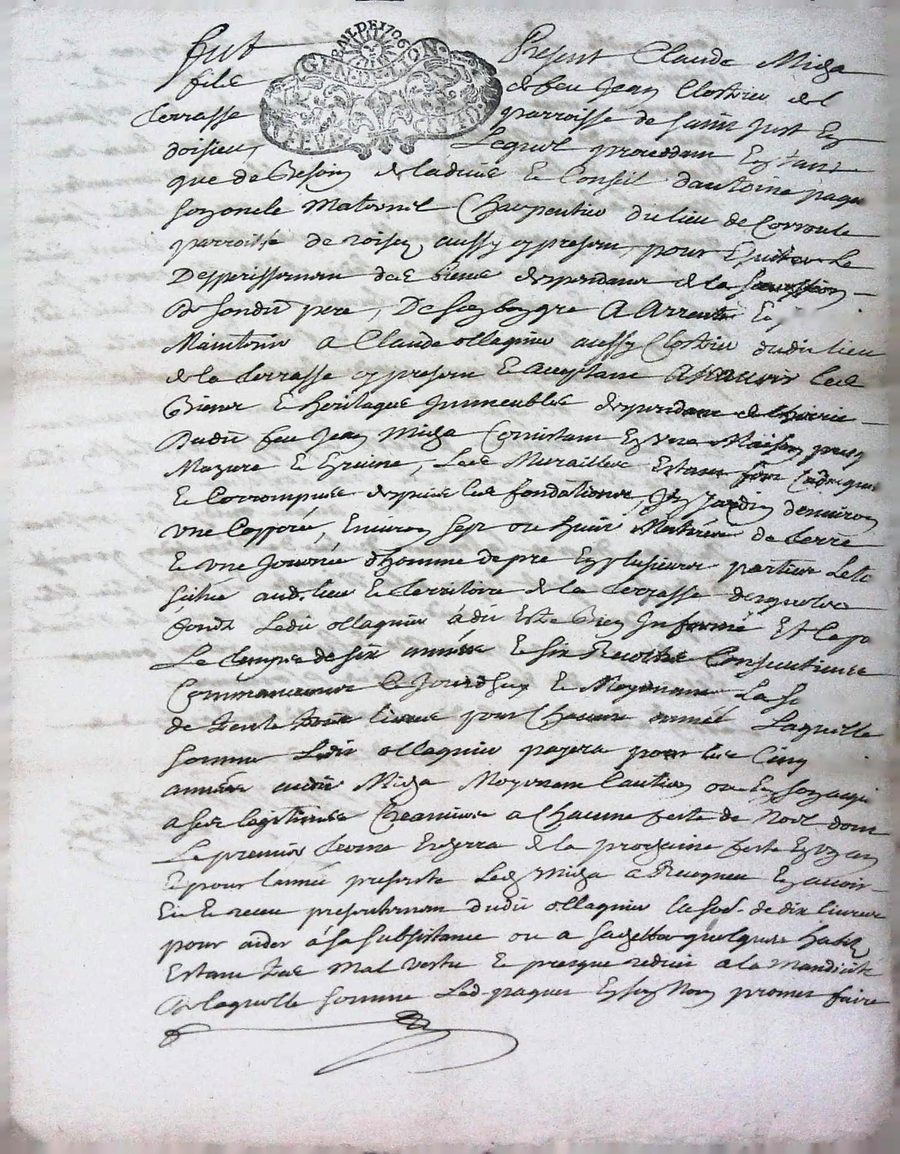 GEN. DE LYON
Fut Present Claude Miga
fils de feu Jean Clostrier de l
terrasse parroisse de saint Just En
doisieu, Lequel procedant Estant
que de Besoin de ladvis Et Conseil dantoine paqu
son oncle Maternel Charpentier du lieu de
parroisse de roisey aussy cy present, pour Eviter Le
Desperissement des biens dependant de la succession
De sondit pere, De son bon gre A Arrenté Et
Maintenir a Claude ollagnier aussy Clostrier dudit lieu
de la terrasse cy present Et acceptant Ascavoir Les
Biens Et heritages Immeubles dependant de
Dudit feu Jean Miga Consistant En une Maison presq
Mazure Et Eruine, Les Murailles Estant fort
Et Corrompues depuis les fondations, Un Jardin denviron
une Copponée, Environ sept ou huit Meterées de terre
Et une Journée dhomme de pre En plusieurs parties Le
situé aud. lieu Et territoire de la terrasse desquels
fonds Ledit ollagnier à dit Estre Bien Informé Et Ce po
Le temps de six années Et six Recoltes Consecutives
Commancant Ce Jourdhuy Et Moyenant La
de trente livres pour Chacune année Laquelle
somme Ledit ollagnier payera pour les Cinq
années audit Miga Moyenant Caution ou
a ses legitimes Creanciers a Chacune feste de Noel dont
Le premier terme Escherra de la prochaine feste En un an
Et pour lannée presente Led. Miga a Recogneu En avoir
Eu Et receu presentement dudit ollagnier la so. de dix livres
pour aider à sa subsistance ou a Sachetter quelques habits
Estant tres Mal vestu Et presque reduit a la Mandicité
De laquelle somme Led. paquet En son Nom promet faire